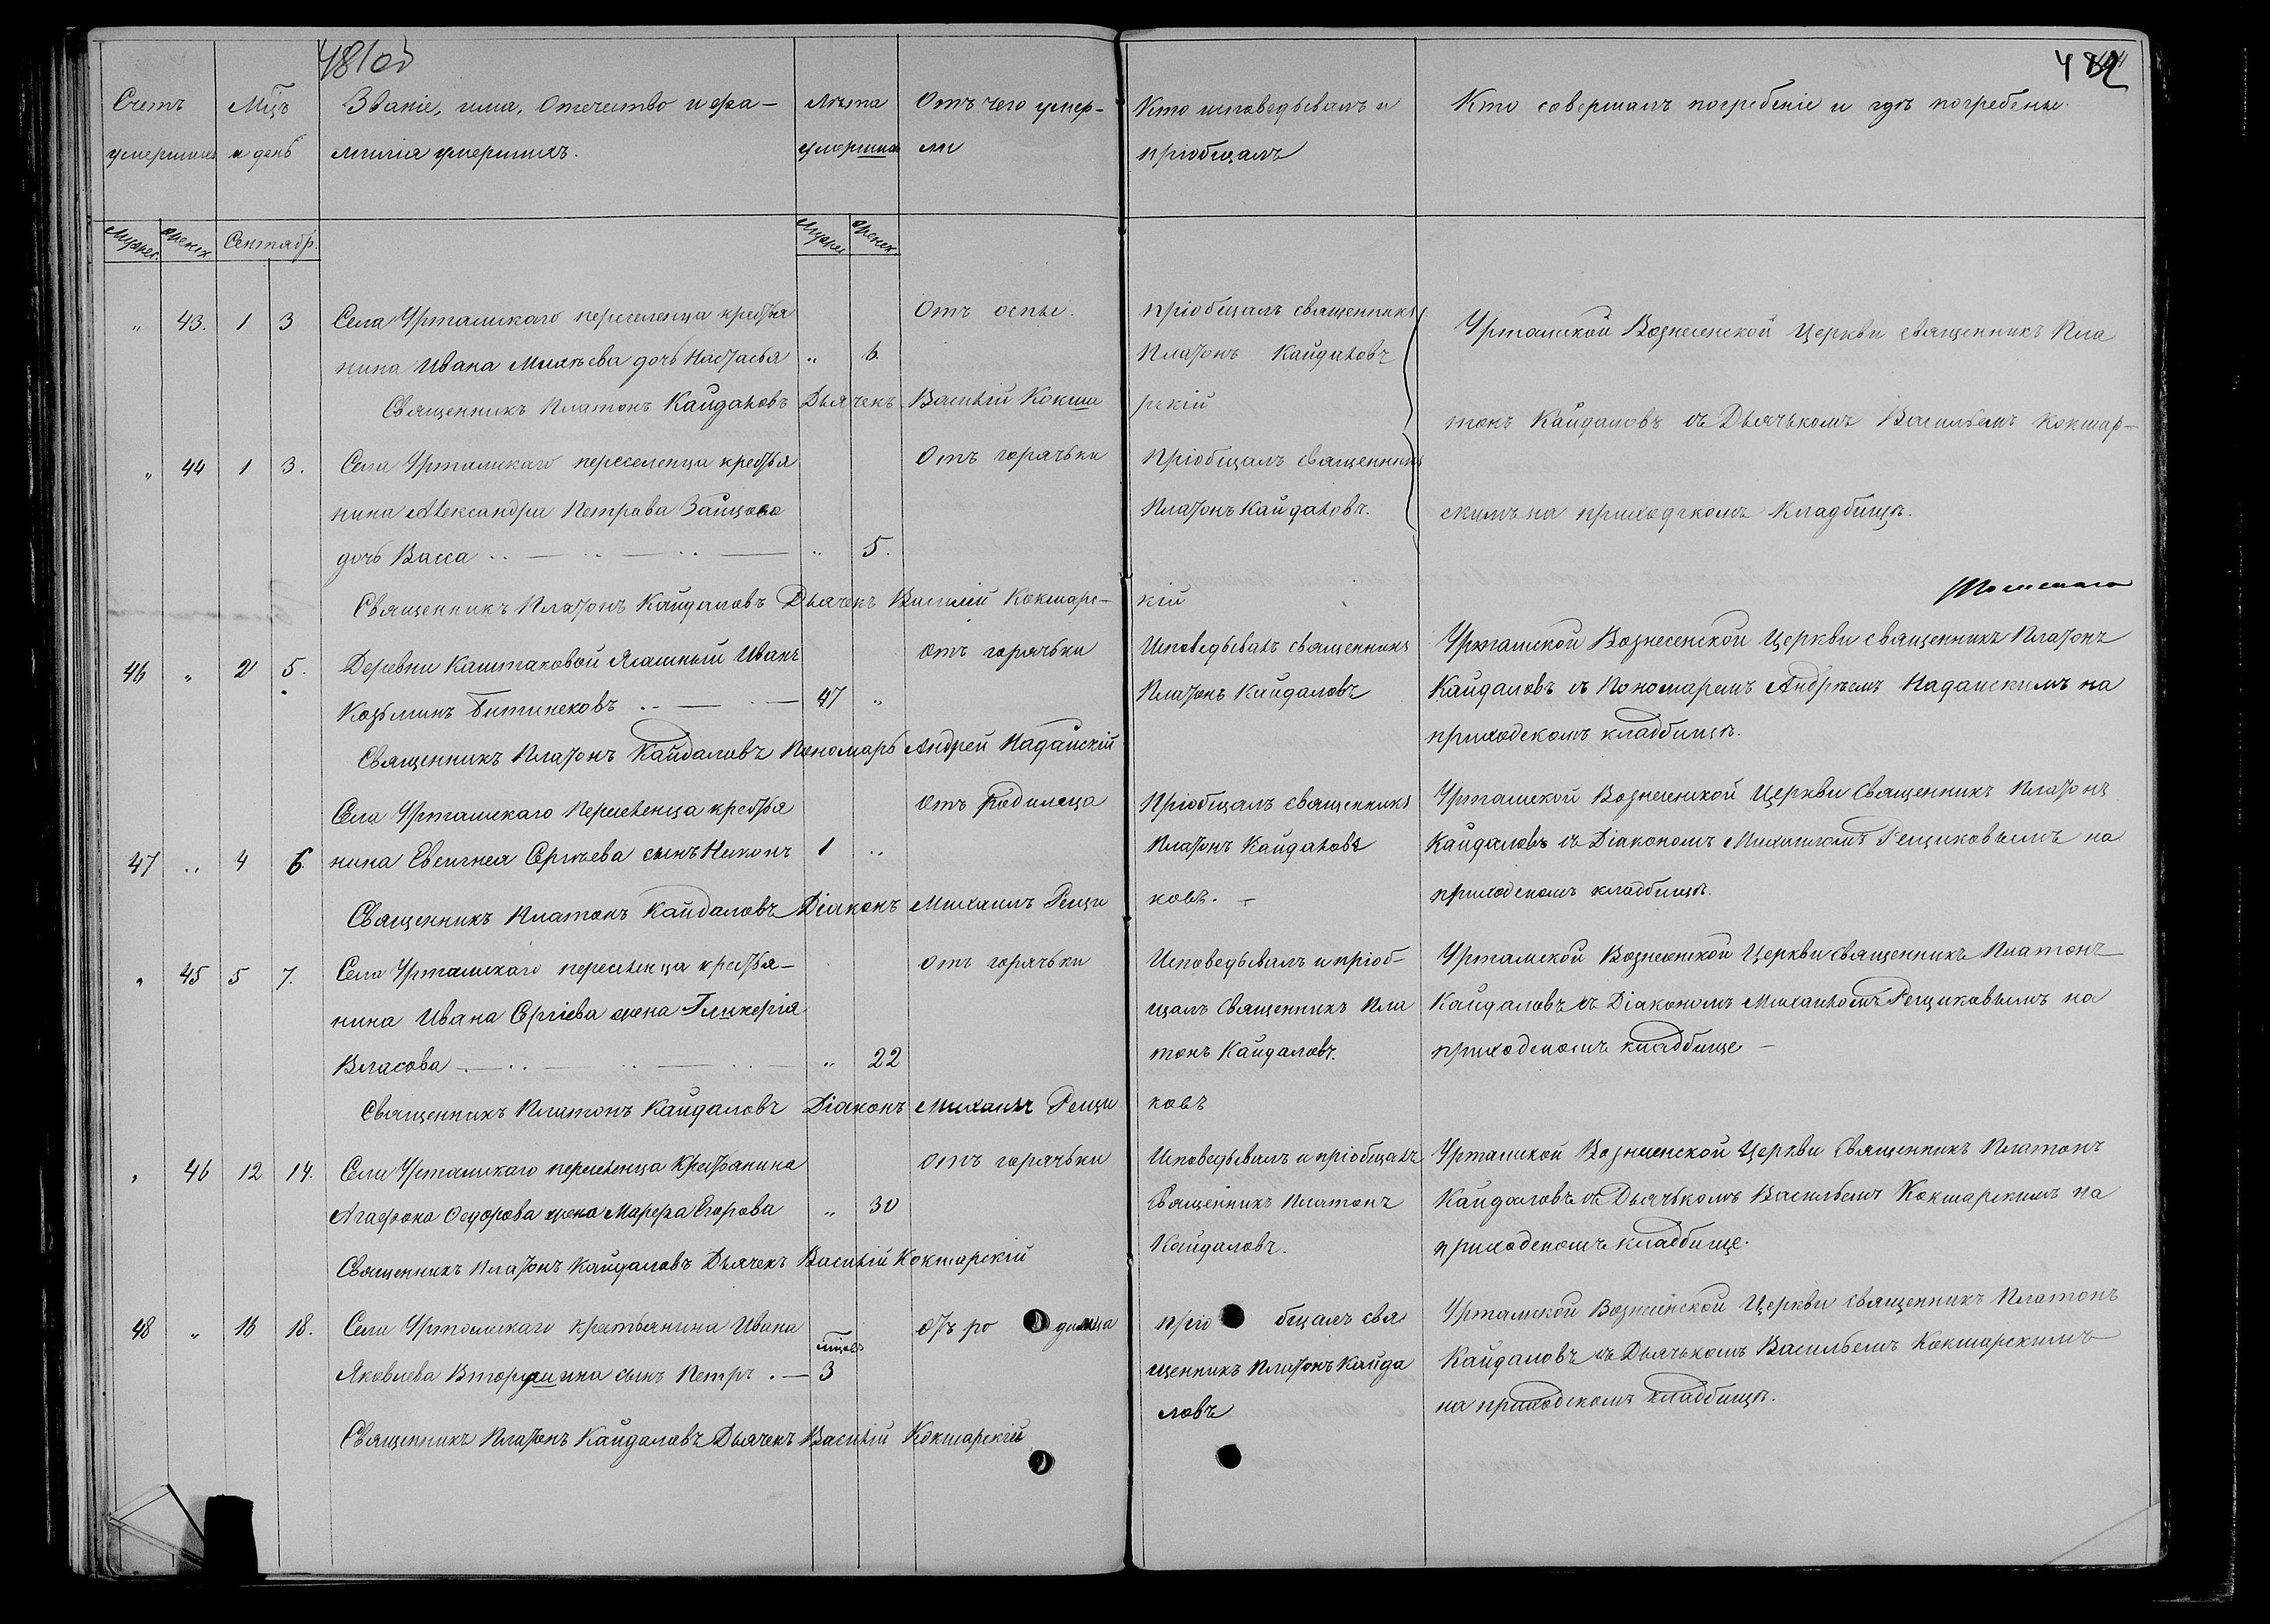 481об
482
Счетъ умершихъ
Мцъ и день
Званіе, имя, Отечество и фа-
милія умершихъ.
Лѣта умершихъ
Отъ чего умер-
ли
Кто исповедывалъ и
пріобщалъ
Кто совершалъ погребеніе и гдѣ погребены.
Мужес. Женск. Сентябр. Мужес. Женск.
" 43. 1 3 Села Уртамскаго переселенца крестья
нина Ивана Михѣева дочь Настасья " 6.
Отъ оспы.
пріобщалъ священникъ
Платонъ Кайдаловъ
Уртамской Вознесенской Церкви священникъ Пла
тонъ Кайдаловъ съ Дьячькомъ Васильемъ Кокшар-
скимъ на приходскомъ Кладбищѣ.
Священникъ Платонъ Кайдаловъ Дьячекъ Василій Кокша рскій
" 44 1 3. Села Уртамскаго переселенца крестья
нина Александра Петрова Зайцова
дочь Васса " 5.
Отъ горячьки
Пріобщалъ священникъ
Платонъ Кайдаловъ.
Священникъ Платонъ Кайдаловъ Дьячекъ Василій Кокшарс- кій
46 " 2 5. Деревни Каштаковой Ясашный Иванъ
Козьминъ Битинековъ 47 "
отъ горячьки
Исповедывалъ священникъ
Платонъ Кайдаловъ
Уртамской Вознесенской Церкви священникъ Платонъ
Кайдаловъ съ Пономаремъ Андрѣемъ Наданскимъ на
приходскомъ кладбищѣ.
Священникъ Платонъ Кайдаловъ Пономарь Андрей Наданскій
47 " 4 6. Села Уртамскаго Переселенца крестья
нина Евсигнея Сергѣева сынъ Никонъ 1 "
отъ Родимца
Пріобщалъ священникъ
Платонъ Кайдаловъ
Уртамской Вознесенской Церкви Священникъ Платонъ
Кайдаловъ съ Діакономъ Михаиломъ Рещиковымъ на
приходскомъ кладбищѣ.
Священникъ Платонъ Кайдаловъ Діаконъ Михаилъ Рещи ковъ.
" 45 5 7. Села Уртамскаго переселенца крестья-
нина Ивана Ергіева жена Гликерія
Власова " 22
отъ горячьки
Исповедывалъ и пріоб-
щалъ Священникъ Пла
тонъ Кайдаловъ.
Уртамской Вознесенской Церкви священникъ Платонъ
Кайдаловъ съ Діакономъ Михаиломъ Рещиковымъ на
приходскомъ кладбище
Священникъ Платонъ Кайдаловъ Діаконъ Михаилъ Рещи ковъ
" 46 12 14. Села Уртамскаго переселенца Крестьянина
Агафона Федорова жена Марфа Егорова " 30
отъ горячьки
Исповедывалъ и пріобщалъ
Священникъ Платонъ
Кайдаловъ.
Уртамской Вознесенской Церкви Священникъ Платонъ
Кайдаловъ съ Дьячькомъ Васильемъ Кокшарскимъ на
приходскомъ кладбище.
Священникъ Платонъ Кайдаловъ Дьячекъ Василій Кокшарскій
48 " 16 18. Села Уртамскаго крестьянина Ивана
Яковлева Вторушина сынъ Петръ. 3
отъ родимца
пріобщалъ свя
щенникъ Платонъ Кайда
ловъ
Уртамской Вознесенской Церкви священникъ Платонъ
Кайдаловъ съ Дьячькомъ Васильемъ Кокшарскимъ
на приходскомъ кладбищѣ.
Священникъ Платонъ Кайдаловъ Дьячекъ Василій Кокшарскій